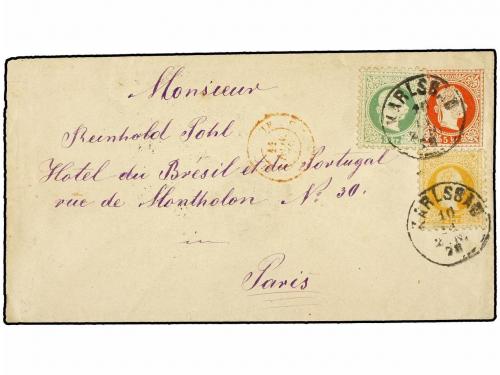 Monsieur
Reinhold Pohl
Hotel du Brésil et du Portugal
rue de Montholon No. 30.
in
Paris
KARLSBAD
KARLSBAD
10
78